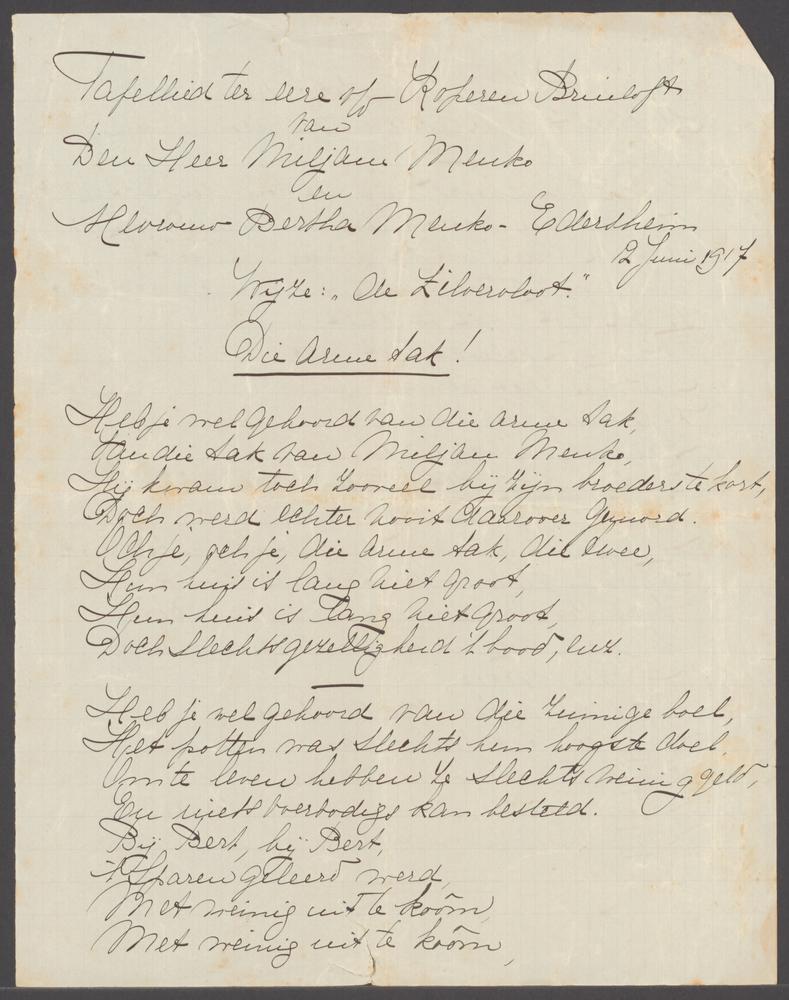 Tafellied ter eere op Koperen Bruiloft
van
Den Heer Miljam Menko
en
Mevrouw Bertha Menko - Edersheim
12 Juni 1917
Wijze: "de Zilvervloot."
Die arme tak!
Heb je wel gehoord van die arme tak,
Van die tak van Miljam Menko,
Hij kwam toch zooveel bij zijn broeders te kort,
Doch werd echter nooit daarover gemord.
Och je, och je, die arme tak, die twee,
Hun huis is lang niet groot,
Hun huis is lang niet groot,
Doch slechts gezelligheid 't bood, enz.
Heb je wel gehoord van die zuinige boel,
Het potten was slechts hun hoogste doel,
Om te leven hebben ze slechts weinig geld,
En niets overbodigs kan besteld.
Bij Bert, bij Bert,
't Sparen geleerd werd,
Met weinig uit te koôm,
Met weinig uit te koôm,